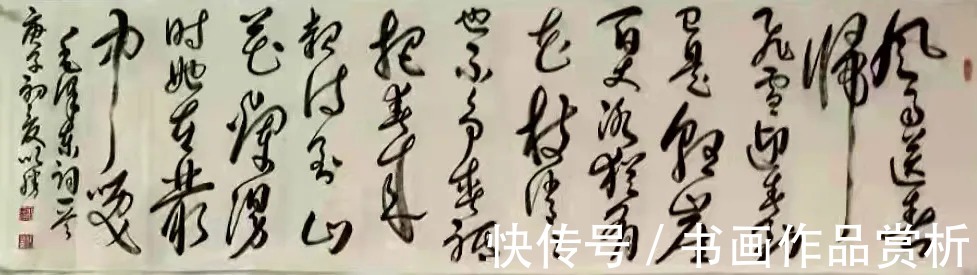 風雨送春
歸
飛雪迎春到
已是懸崖
百丈冰猶有
花枝俏俏
也不争春祇
把春来
報待到山
花爛漫
时她在叢
中笑
毛澤东詞一首
庚子初夏
快传号/书画作品赏析